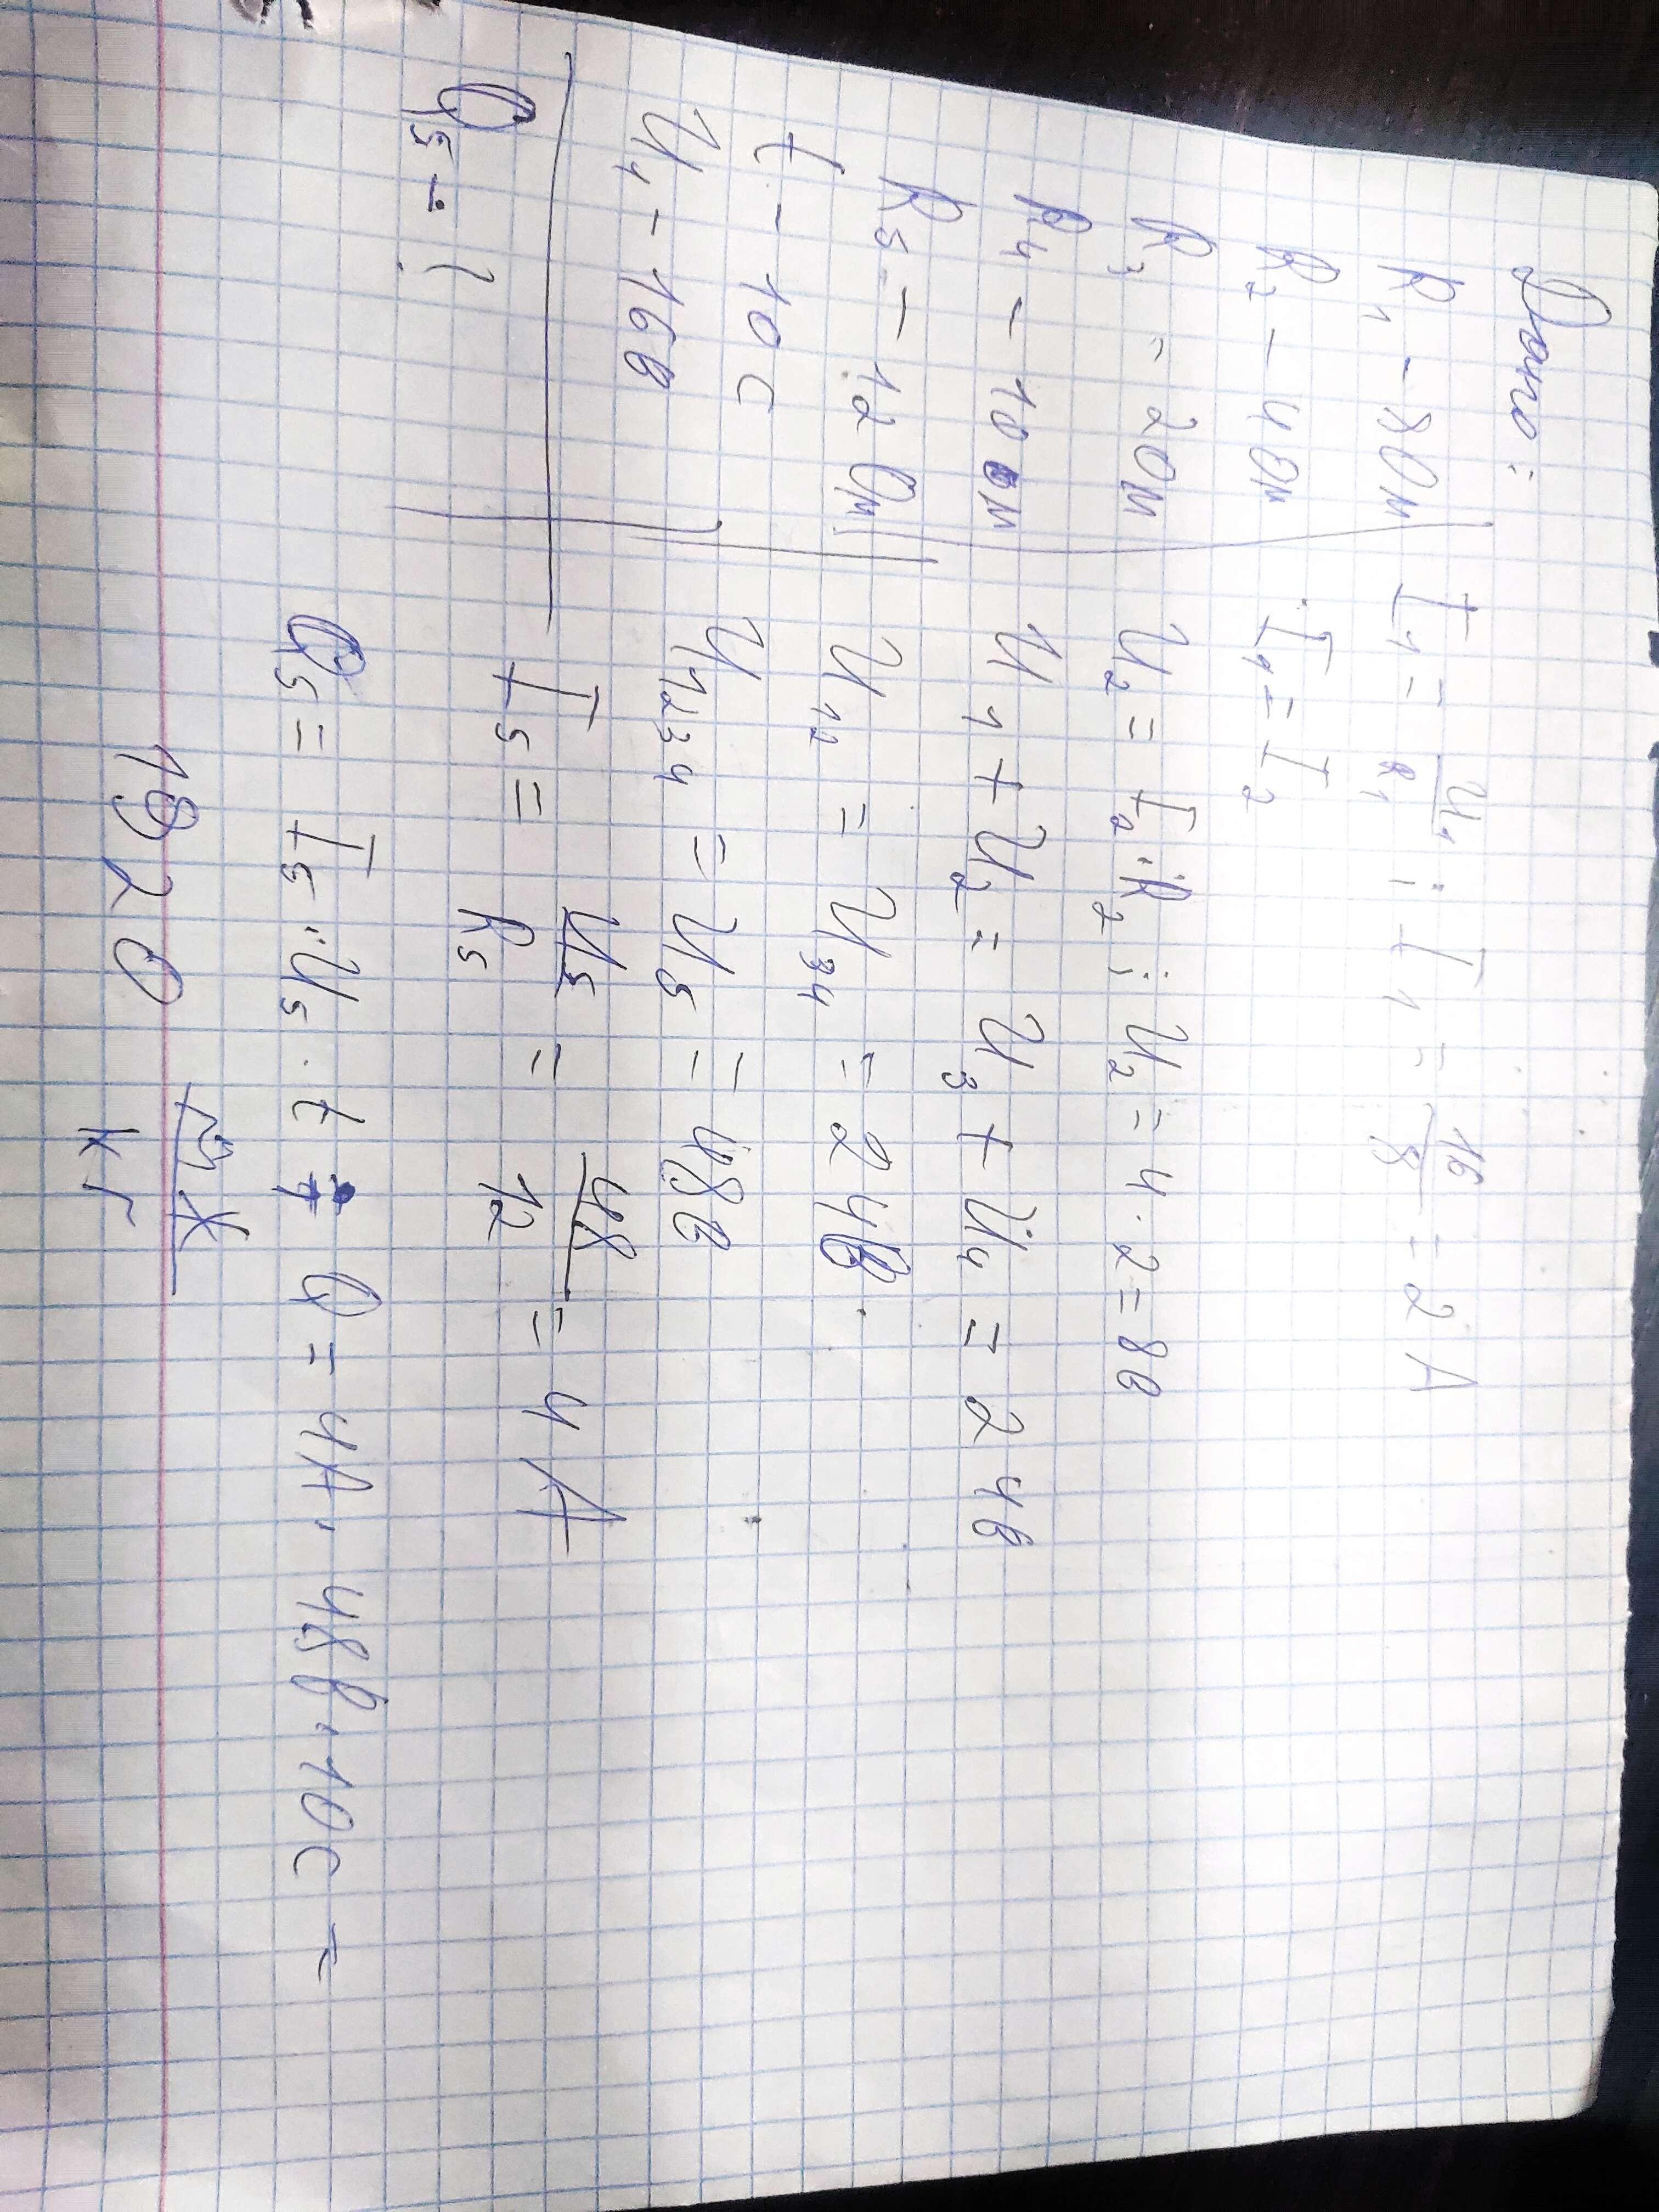 Дано:
R₁ - 8Ом
R₂ - 4Ом
R₃ - 2Ом
R₄ - 10 Ом
R₅ - 12 Ом
t - 10 с
U₁ - 16В
Q₅ - ?
I₁ = U₁/R₁ ; I₁ = 16/8 = 2 А
I₁ = I₂
U₂ = I₂·R₂ ; U₂ = 4·2 = 8В
U₁ + U₂ = U₃ + U₄ = 24В
U₁₂ = U₃₄ = 24В.
U₁₂₃₄ = U₅ = 48В
I₅ = U₅/R₅ = 48/12 = 4 А
Q₅ = I₅·U₅·t Q = 4А·48В·10с =
1920 Дж/кг